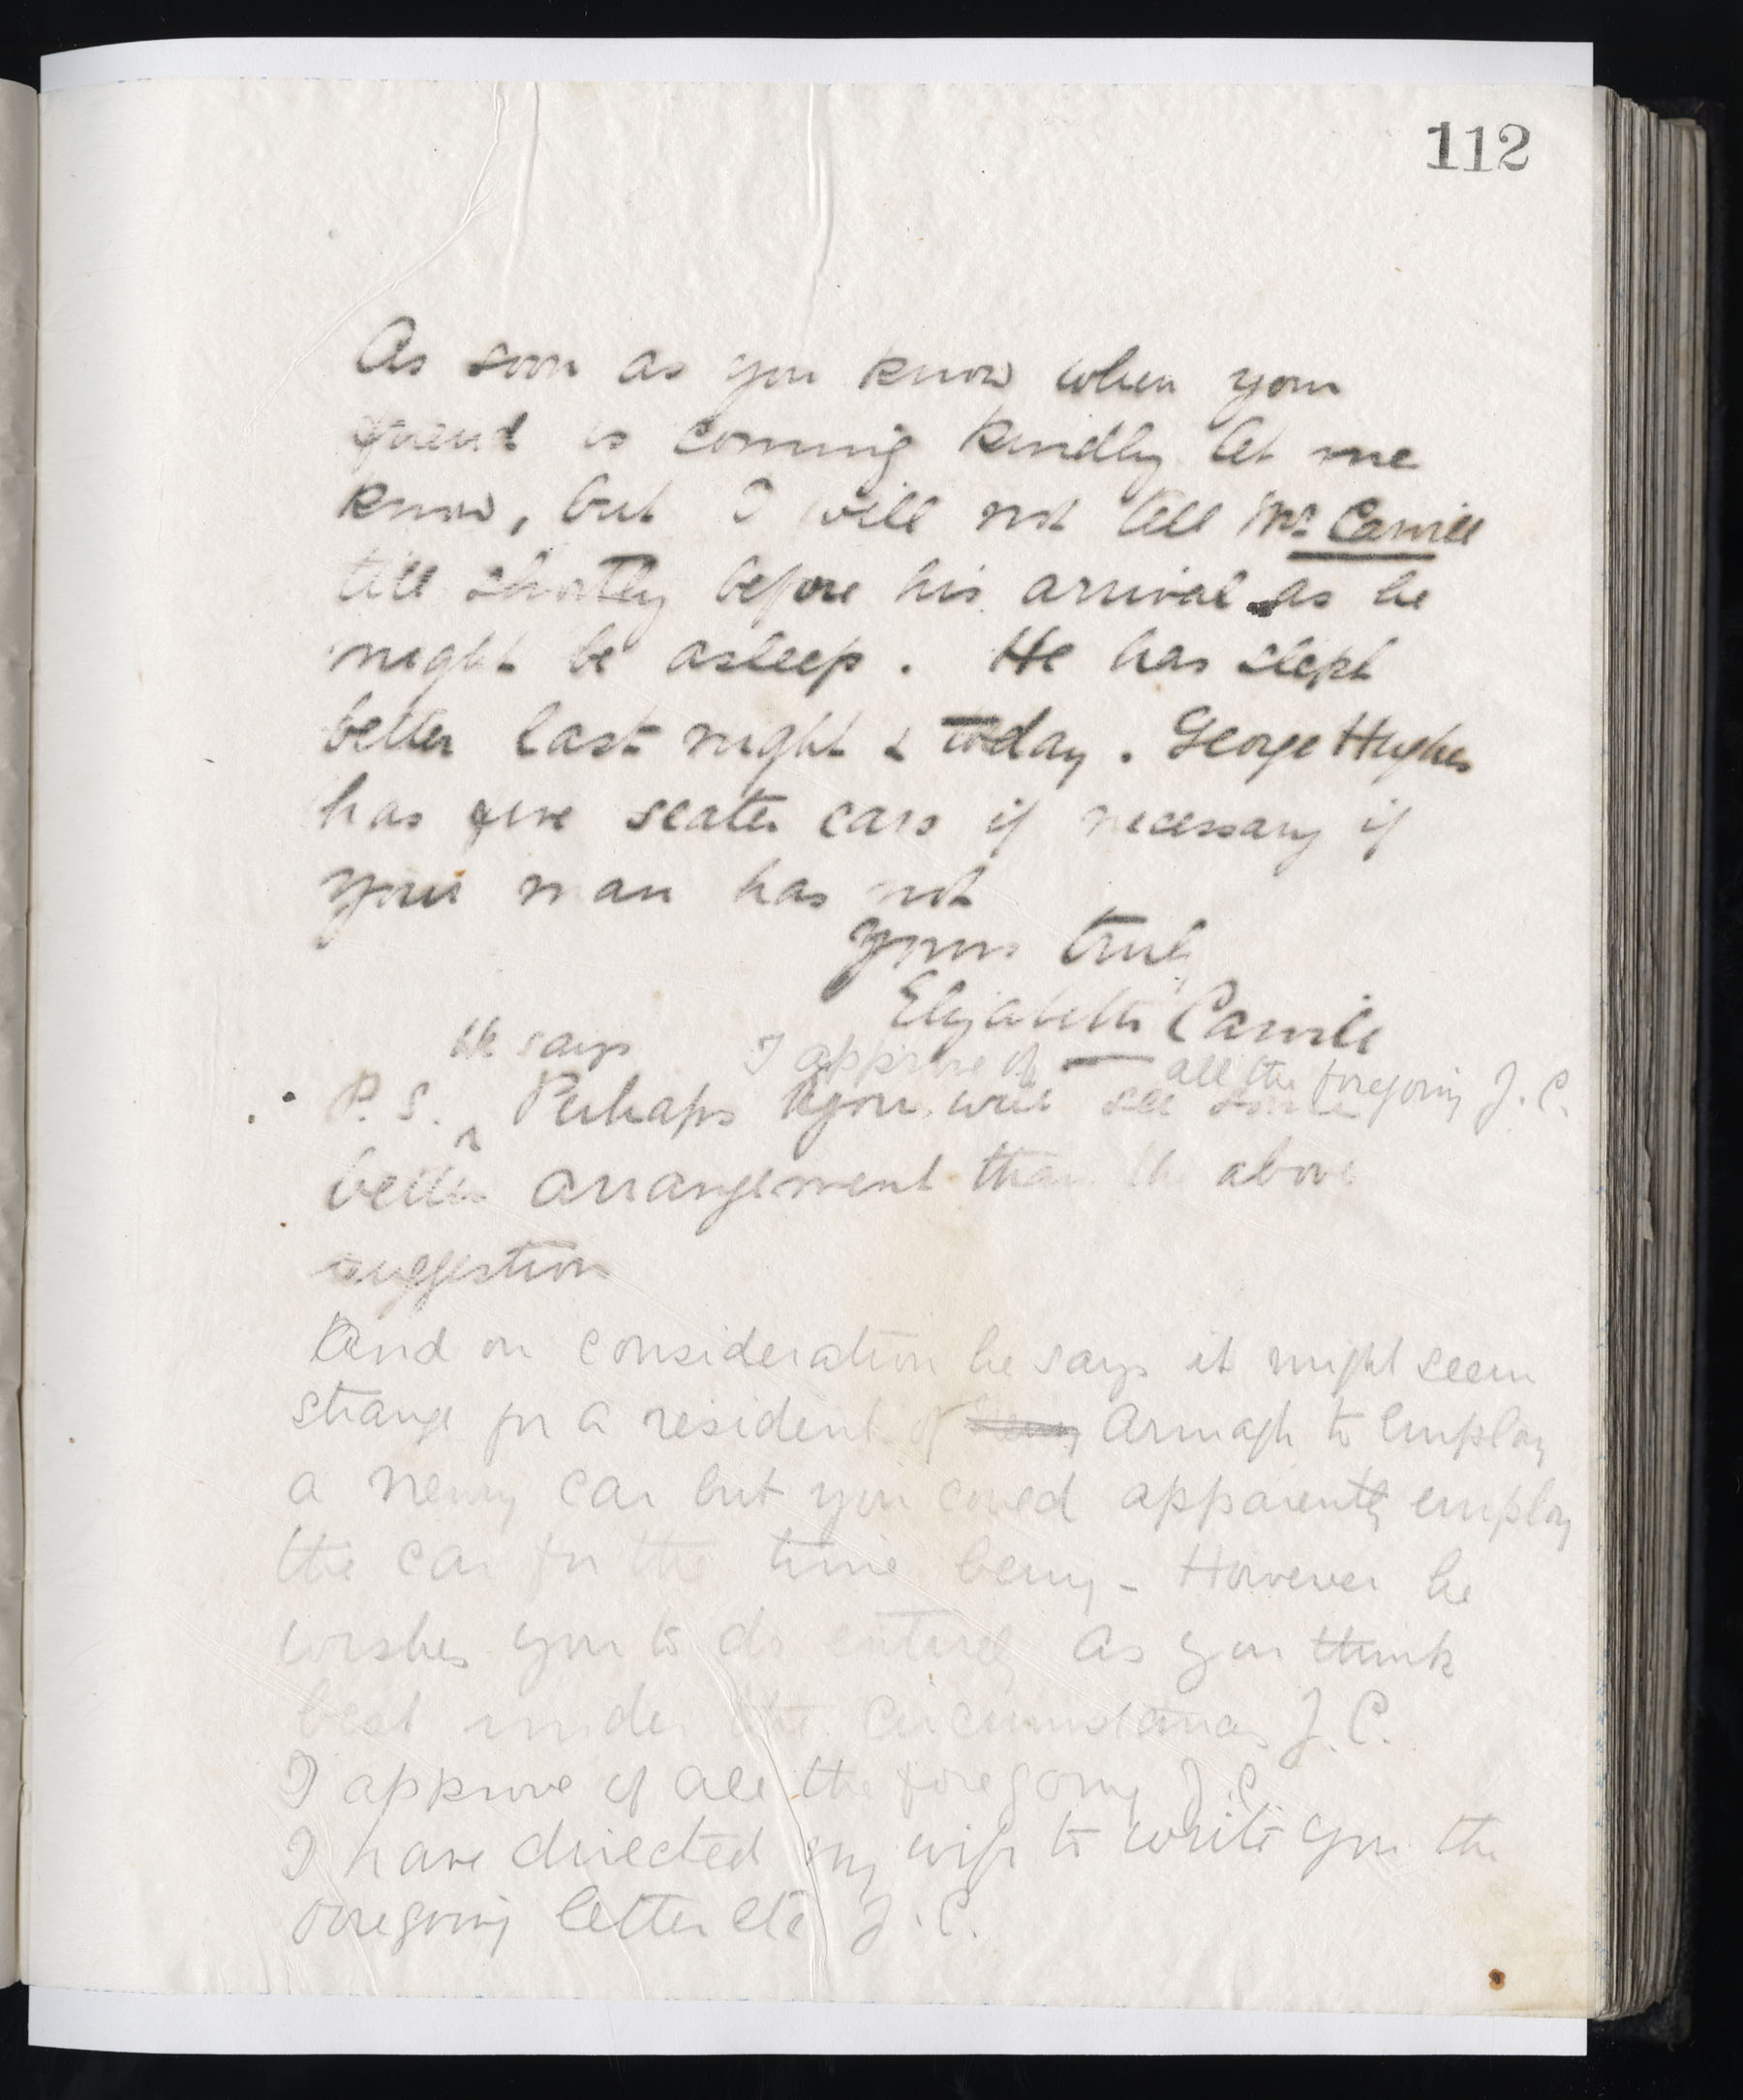 112
As soon as you know when your
friend is coming kindly let me
know, but I will not tell Mr. Carvill
till shortly before his arrival as he
might be asleep. He has slept
better last night & today. George Hughes
has five seater cars if necessary if
your man has not
Yours truly
Elizabeth Carvill
I approve of all the foregoing J. C.
He says
P.S. ^ Perhaps you will see some
better arrangement than the above
suggestion
And on consideration he says it might seem
strange for a resident of Armagh to employ
a Newry car but you could apparently employ
the car for the time being - However he
wishes you to do entirely as you think
best under the circumstances J. C.
I approve of all the foregoing J. C.
I have directed my wife to write you the
foregoing letter etc J. C.